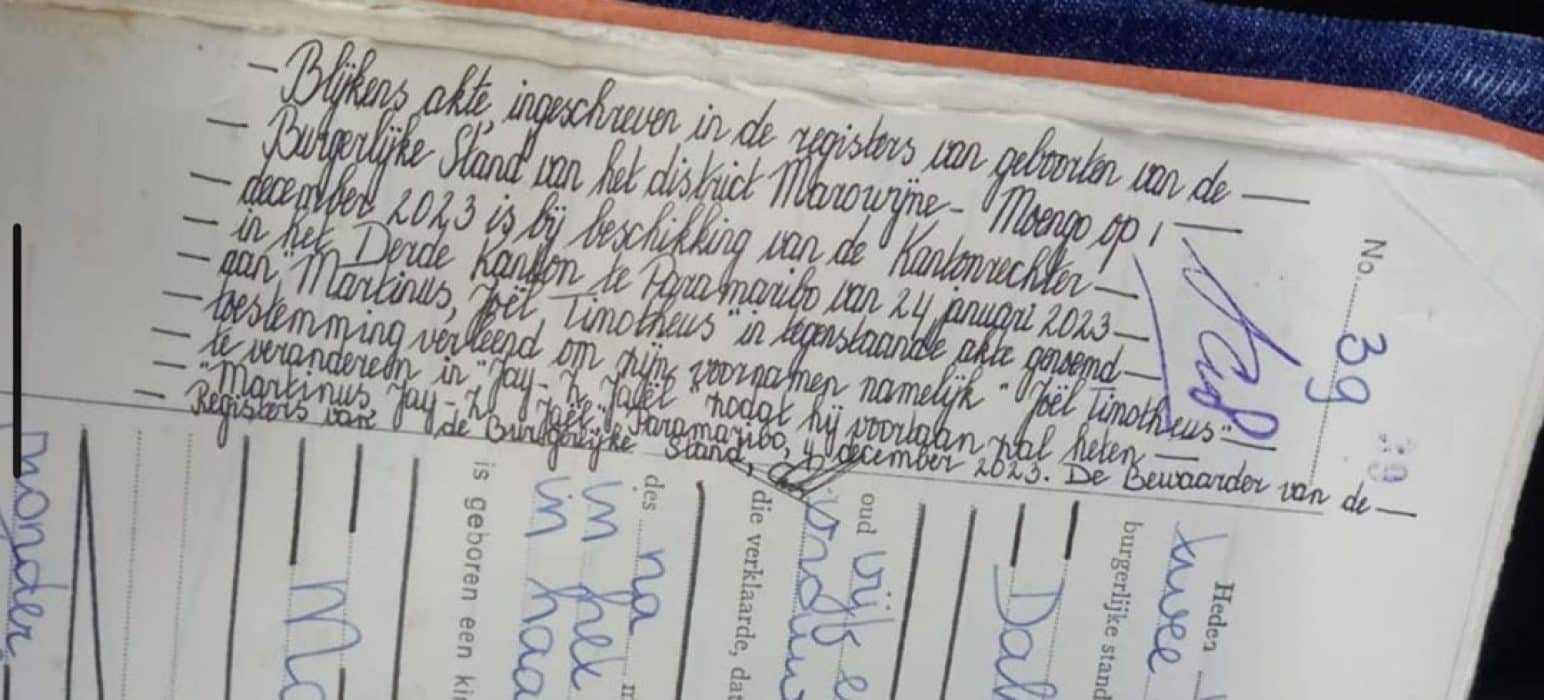 — Blijkens akte, ingeschreven in de registers van geboorten van de —
— Burgerlijke Stand van het district Marowijne - Moengo op 1 —
— december 2023 is bij beschikking van de Kantonrechter —
— in het Derde Kanton te Paramaribo van 24 januari 2023 —
— aan "Martinus, Joël Timotheus" in tegenstaande akte genoemd —
— toestemming verleend om zijn voornamen namelijk "Joël Timotheus" —
— te veranderen in "Jay-Z, Jaël" zodat hij voortaan zal heten —
— "Martinus, Jay-Z, Jaël" Paramaribo, 4 december 2023. De Bewaarder van de —
— Registers van de Burgerlijke Stand,
No. 39
39
Heden
twee
burgerlijke stand
Dal
oud vijf e
die verklaarde, dat
des na
in het
in haa
is geboren een ki
Ma
zonder